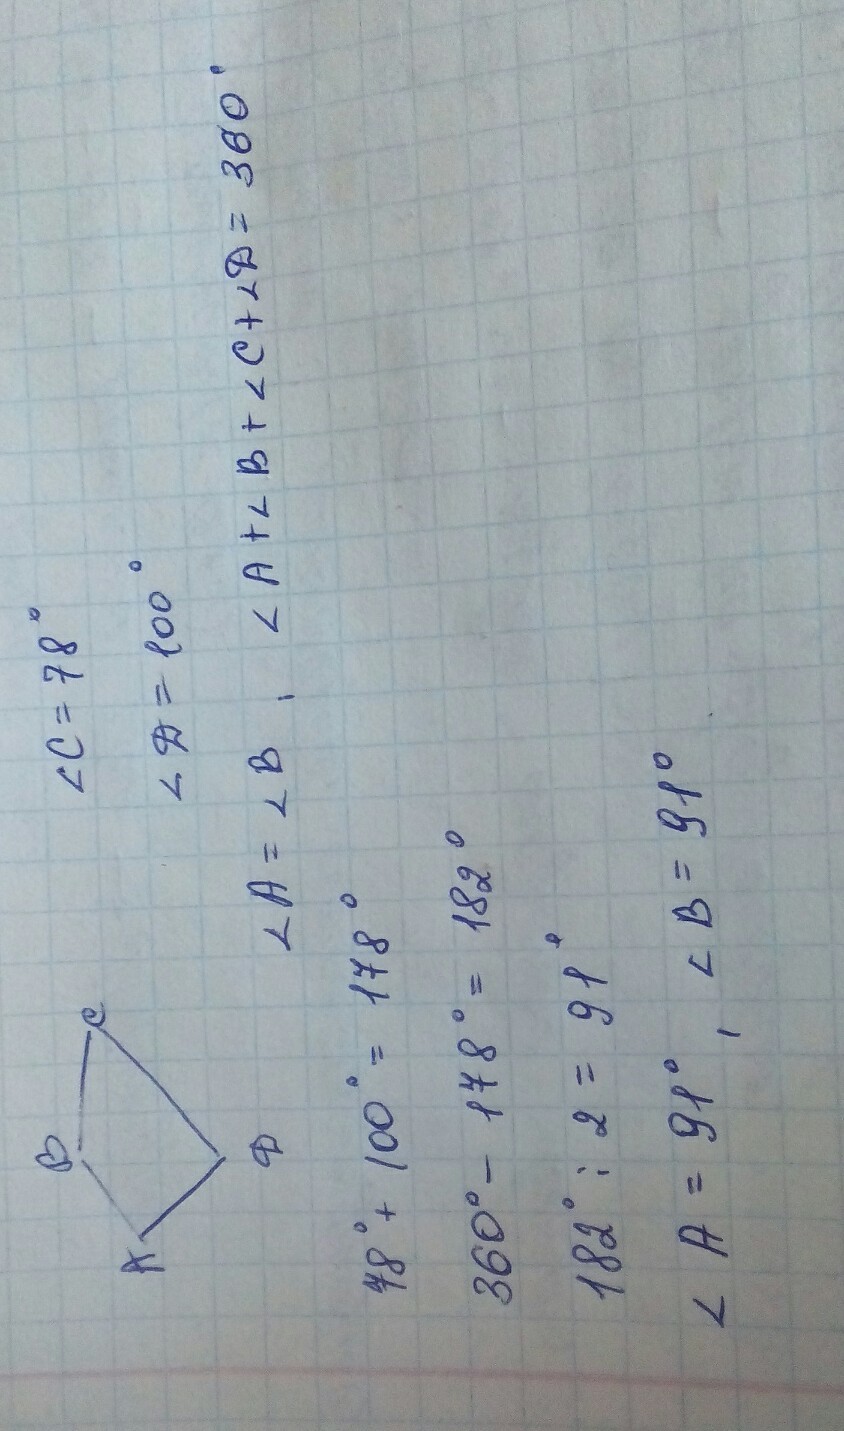 B
C
A
D
∠C = 78°
∠D = 100°
∠A = ∠B, ∠A + ∠B + ∠C + ∠D = 360°
78° + 100° = 178°
360° - 178° = 182°
182° : 2 = 91°
∠A = 91°, ∠B = 91°